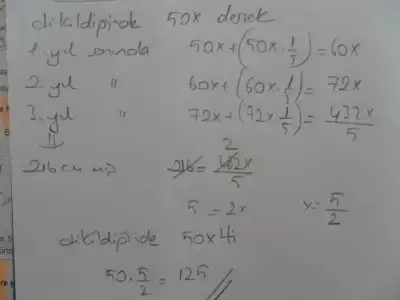 dikildiğinde 50x desek
1. yıl sonunda 50x+(50x.1/5)=60x
2. yıl " 60x+(60x.1/5)=72x
3. yıl " 72x+(72x.1/5)=432x/5
⇓ 2
216 cm ise 216=432x/5
5=2x x=5/2
dikildiğinde 50x di
50.5/2=125